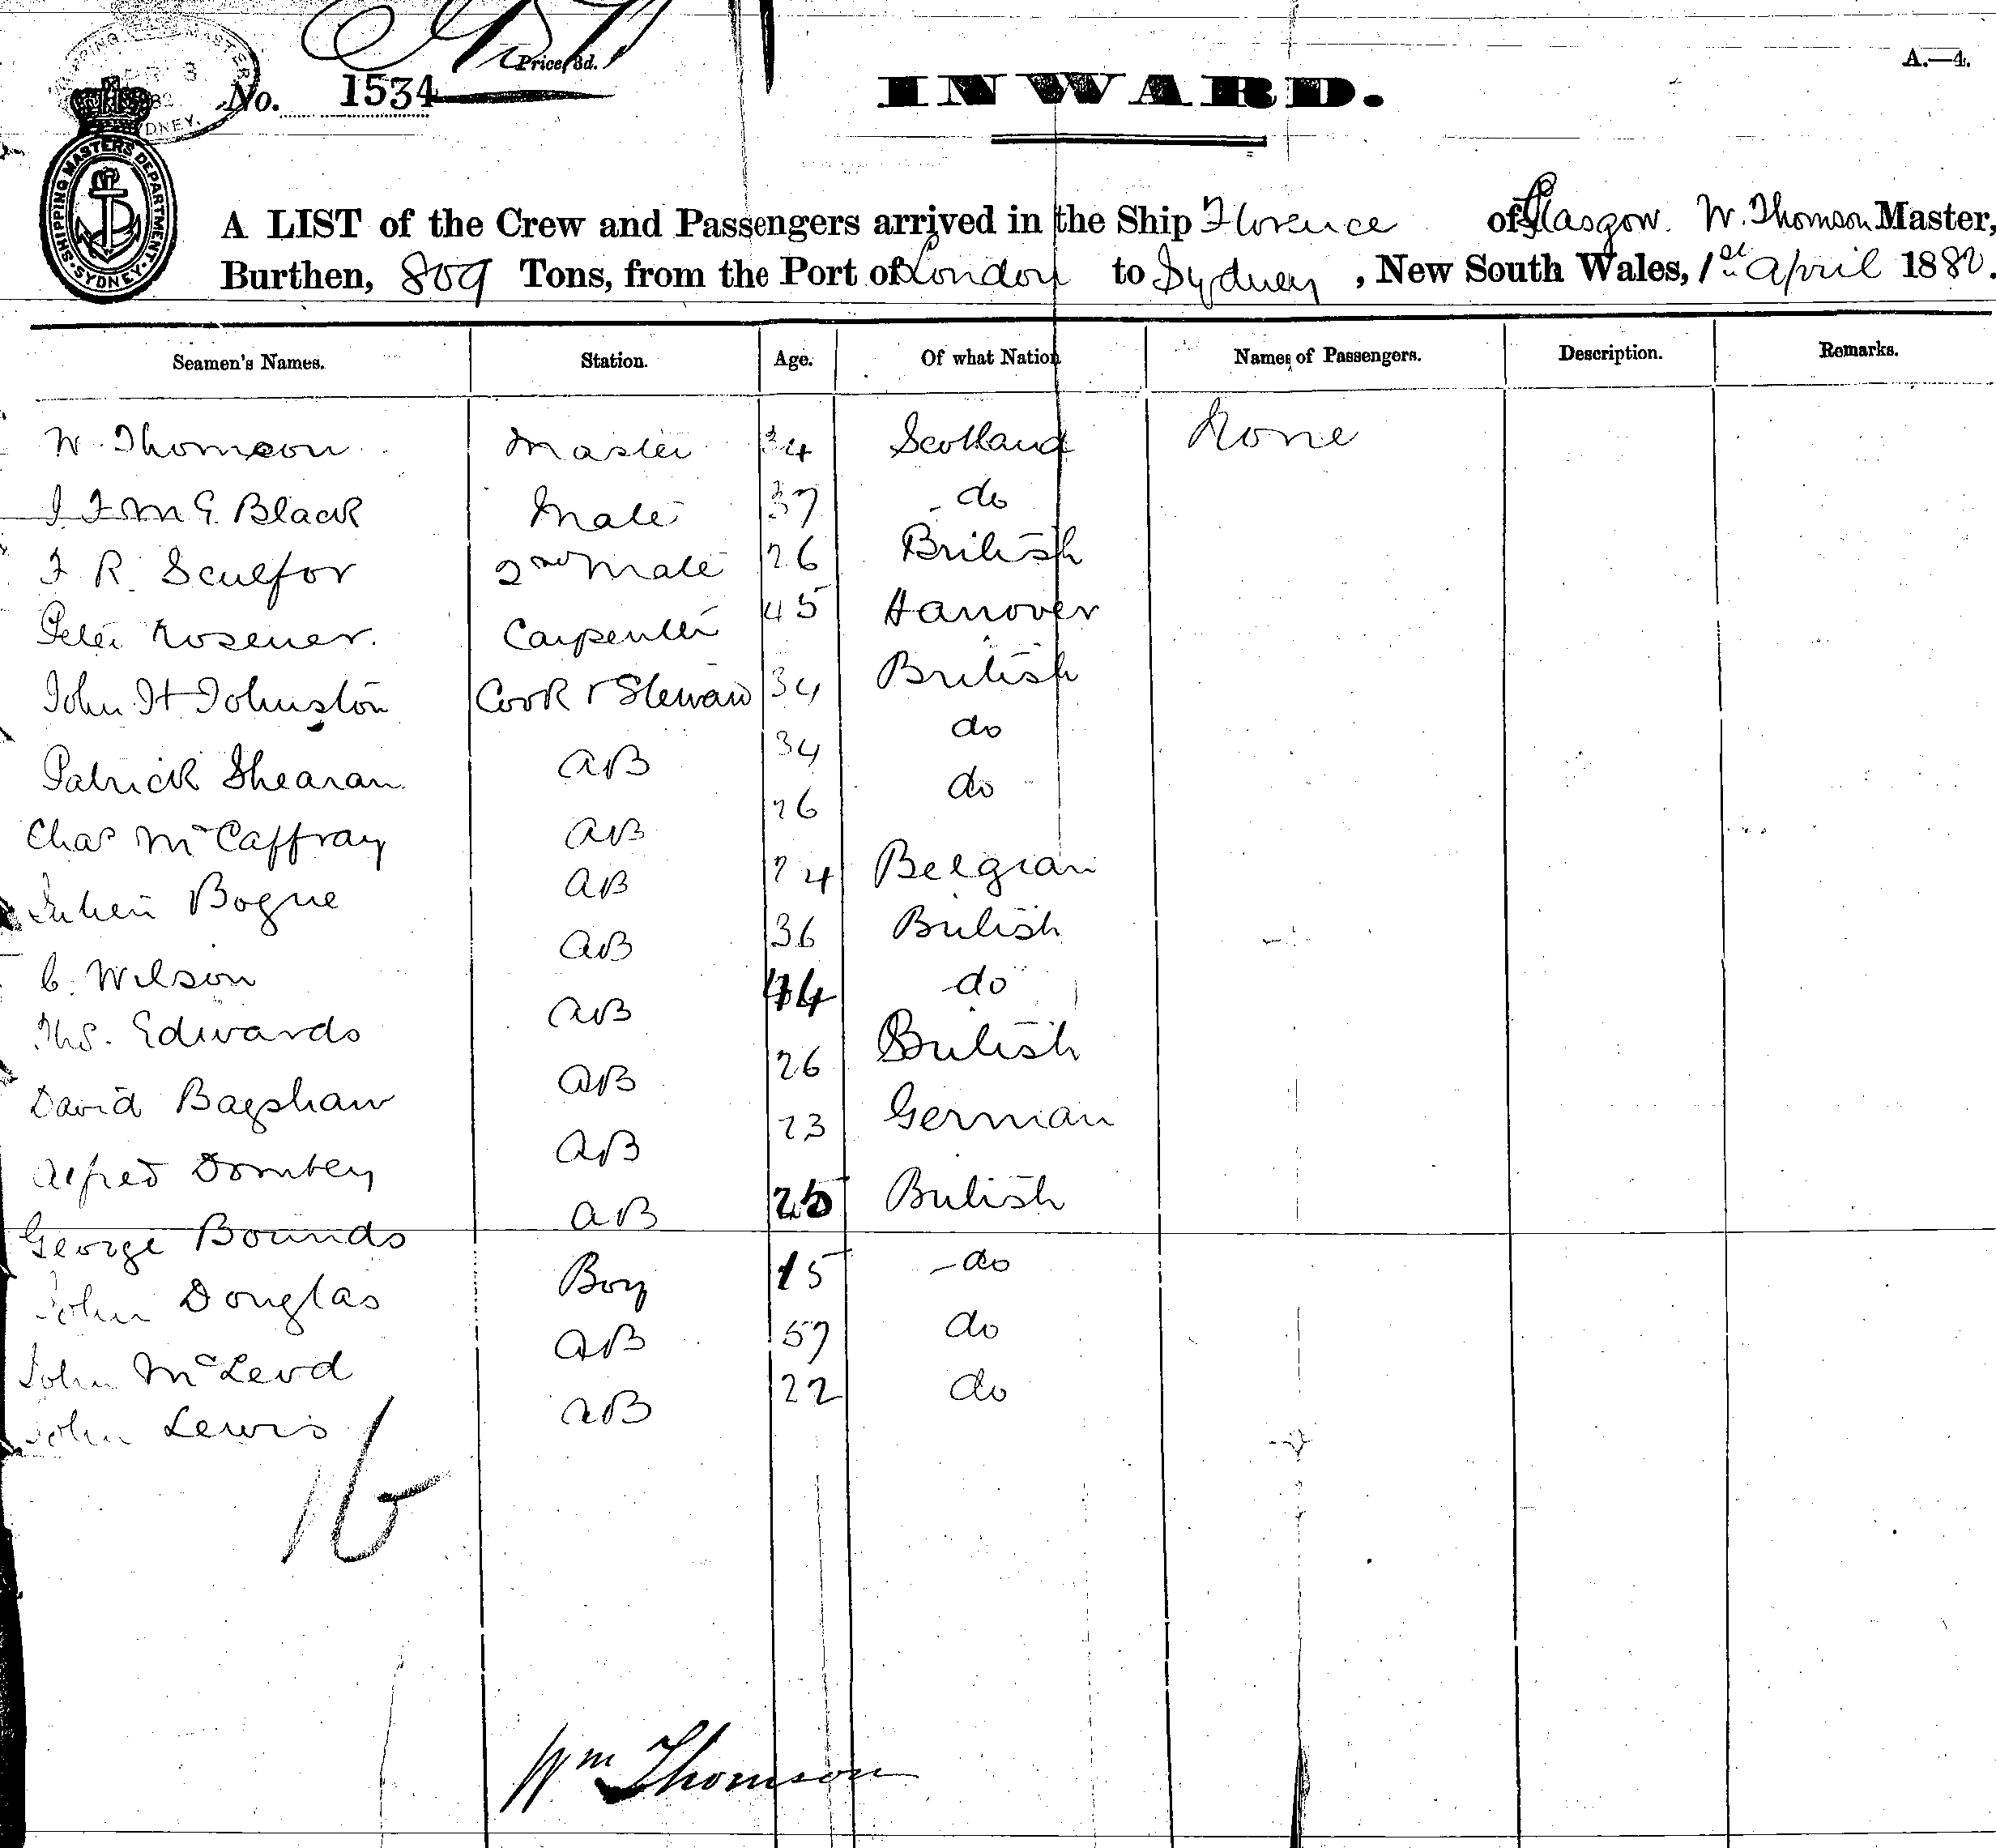 SHIPPING MASTER
SYDNEY.
Price, 3d.
A.—4.
No. 1534
INWARD.
SHIPPING MASTERS DEPARTMENT. SYDNEY.
A LIST of the Crew and Passengers arrived in the Ship Florence of Glasgow. W. Thomson Master,
Burthen, 809 Tons, from the Port of London to Sydney, New South Wales, 1st April 1882.
Seamen's Names. Station. Age. Of what Nation Names of Passengers. Description. Remarks.
W. Thomson Master 34 Scotland None
Black Mate 37 do
F R. Sculfor 2nd Mate 26 British
Peter Rosener. Carpenter 45 Hanover
John H Johnston Cook & Steward 34 British
Patrick Shearan AB 34 do
Chas McCaffray AB 26 do
Julien Bogue AB 24 Belgian
C. Wilson AB 36 British
Thos. Edwards AB 44 do
David Bagshaw AB 26 British
Alfred Dombey AB 23 German
George Bounds AB 25 British
John Douglas Boy 15 do
John McLeod AB 57 do
John Lewis AB 22 do
16
Wm Thomson